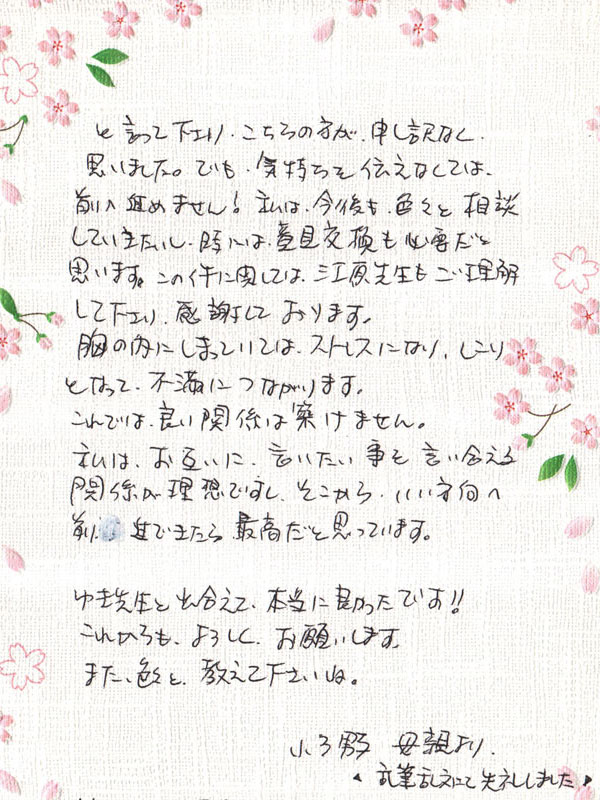 と言って下さり、こちらの方が、申し訳なく
思いました。でも、気持ちを伝えなくては、
前へ進めません！私は、今後も、色々と相談
していきたいし、時には、意見交換も必要だと
思います。この件に関しては、三江原先生もご理解
して下さり、感謝しております。
胸の内にしまっていては、ストレスになり、しこり
となって、不満につながります。
これでは、良い関係は築けません。
私は、お互いに、言いたい事を言い合える
関係が理想ですし、そこから、いい方向へ
前に進できたら最高だと思っています。
ゆき先生と出会えて、本当に良かったです!!
これからも、よろしく、お願いします。
また、色々と、教えて下さいね。
母親より、
乱筆乱文にて失礼しました